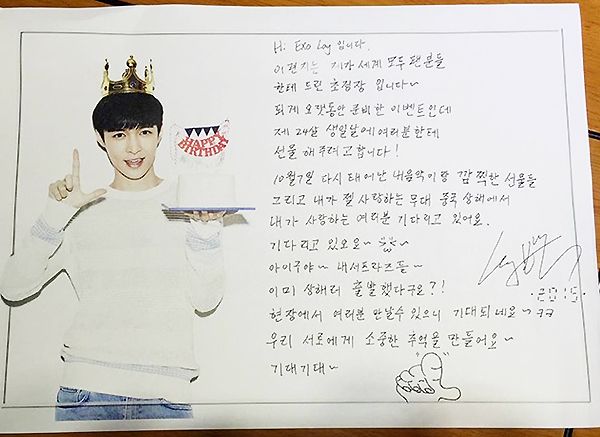 HAPPY
BIRTHDAY
Hi. Exo Lay 입니다.
이 편지는 제가 세계 모두 팬분들
한테 드린 초청장 입니다~
되게 오랫동안 준비한 이벤트인데
제 24살 생일날에 여러분한테
선물 해주려고합니다!
10월7일 다시 태어난 내음악이랑 깜찍한 선물들
그리고 내가 젤 사랑하는 무대 중국 상해에서
내가 사랑하는 여러분 기다리고 있어요.
기다리고 있으요~
아이구야~ 내서프라즈를~
이미 상해러 출발했다구요?!
현장에서 여러분 만날수 있으니 기대되네요~ㅋㅋ
우리 서로에게 소중한 추억을 만들어요~
기대기대~
Lay
2015.